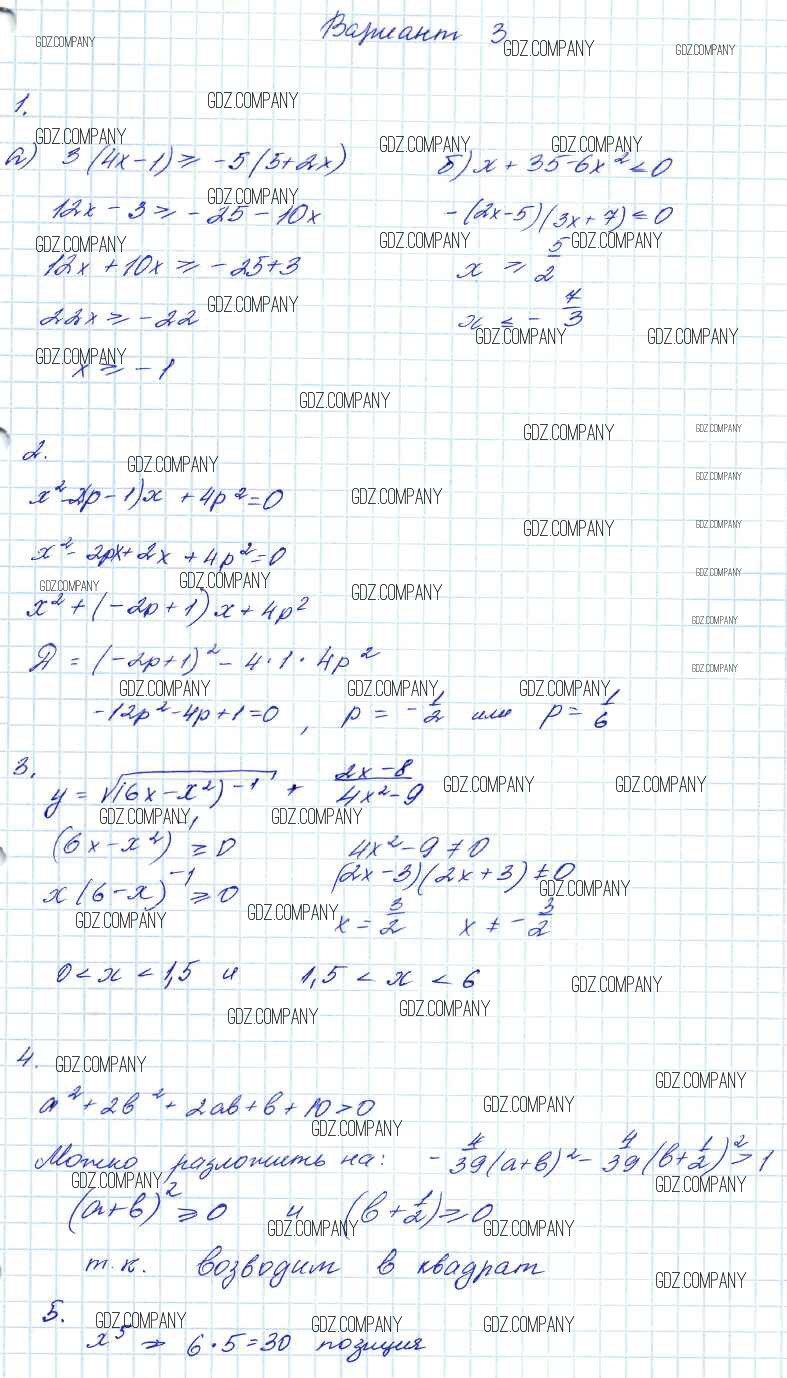 Вариант 3
1.
а) 3(4x-1) ≥ -5(5+2x)
12x - 3 ≥ -25 - 10x
12x + 10x ≥ -25+3
22x ≥ -22
x ≥ -1
б) x + 35-6x² ≤ 0
-(2x-5)(3x+7) ≤ 0
x ≥ 5/2
x ≤ - 7/3
2.
x²-2(p-1)x + 4p² = 0
x² - 2px + 2x + 4p² = 0
x² + (-2p+1)x + 4p²
Д = (-2p+1)² - 4·1·4p²
-12p²-4p+1=0, p = -1/2 или p = 1/6
3.
y = √(6x-x²)⁻¹ + (2x-8)/(4x²-9)
(6x-x²)⁻¹ ≥ 0
x(6-x)⁻¹ ≥ 0
4x²-9 ≠ 0
(2x-3)(2x+3) ≠ 0
x = 3/2 x ≠ -3/2
0 < x < 1,5 и 1,5 < x < 6
4.
a² + 2b² + 2ab + b + 10 > 0
Можно разложить на: -4/39(a+b)² - 4/39(b+1/2)² > 1
(a+b)² ≥ 0 и (b+1/2) ≥ 0
т.к. возводим в квадрат
5.
x⁵ ⇒ 6·5=30 позиция
GDZ.COMPANY